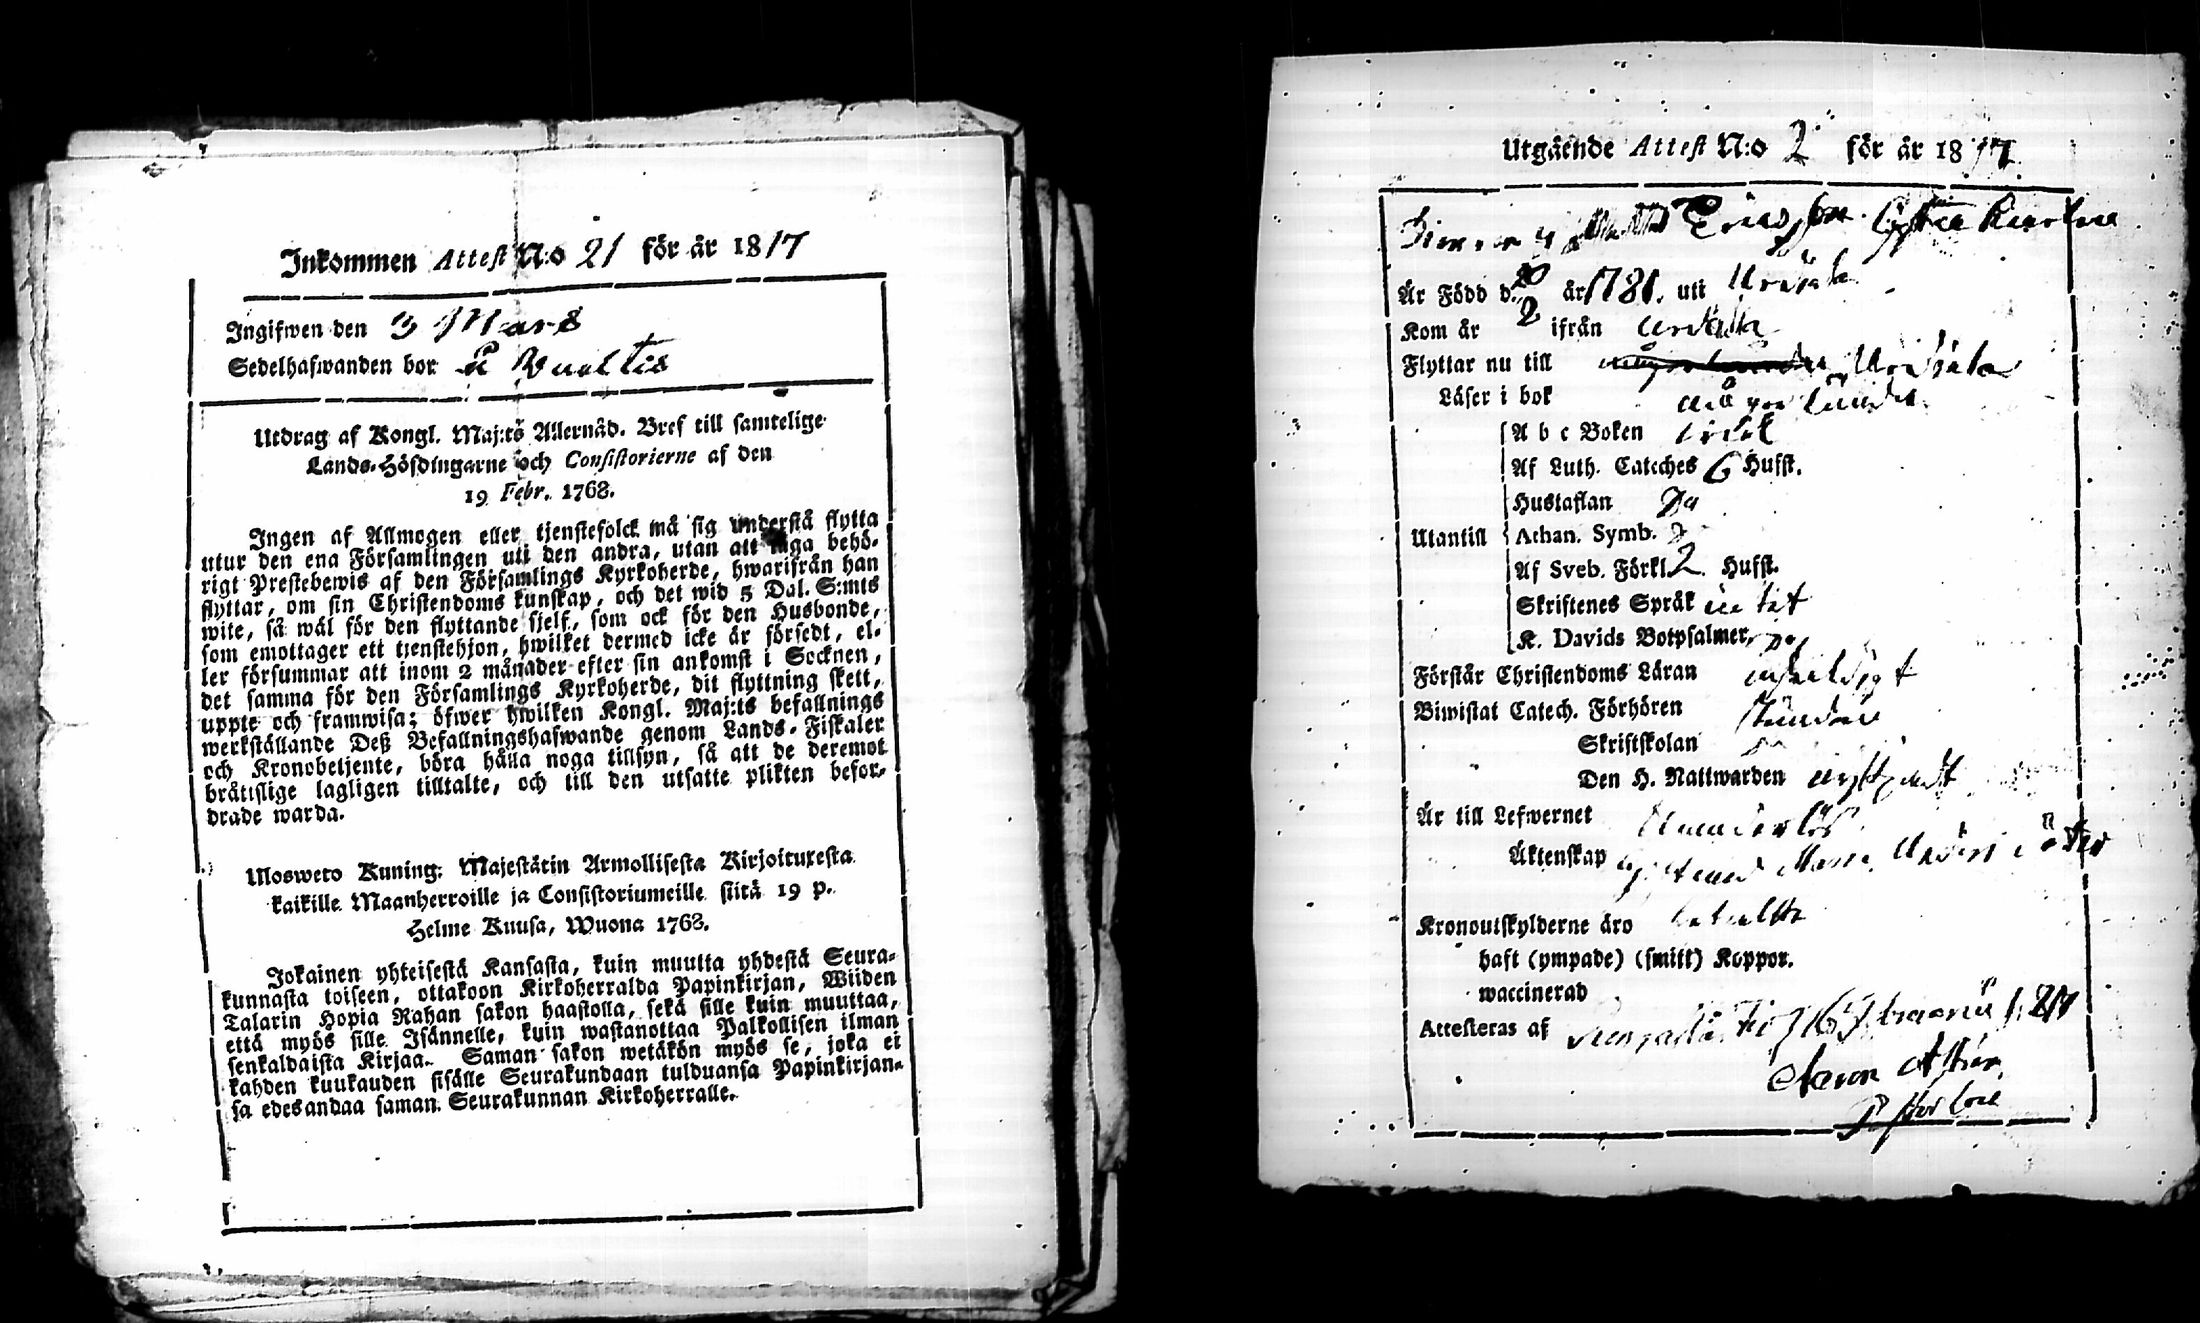 Inkommen Attest N:o 21 för år 1817
Ingifwen den 3 Mars
Sedelhafwanden bor å
Utdrag af Kongl. Maj:ts Allernåd. Bref till samtelige
Lands-Höfdingarne och Consistorierne af den
19 Febr. 1768.
Ingen af Allmogen eller tjenstefolck må sig understå flytta
utur den ena Församlingen uti den andra, utan att taga behö-
rigt Prestebewis af den Församlings Kyrkoherde, hwarifrån han
flyttar, om sin Christendoms kunskap, och det wid 5 Dal. S:mts
wite, så wäl för den flyttande sjelf, som ock för den Husbonde,
som emottager ett tjenstehjon, hwilket dermed icke är försedt, el-
ler försummar att inom 2 månader efter sin ankomst i Socknen,
det samma för den Församlings Kyrkoherde, dit flyttning skett,
uppte och framwisa; öfwer hwilken Kongl. Maj:ts befallnings
werkställande Deß Befallningshafwande genom Lands-Fiskaler
och Kronobetjente, böra hålla noga tillsyn, så att de deremot
bråttslige lagligen tilltalte, och till den utsatte plikten befor-
drade warda.
Ulosweto Kuning: Majestätin Armollisesta Kirjoituxesta
kaikille Maanherroille ja Consistoriumeille siitä 19 p.
Helme Kuusa, Wuona 1768.
Jokainen yhteisestä Kansasta, kuin muutta yhdestä Seura-
kunnasta toiseen, ottakoon Kirkoherralda Papinkirjan, Wiiden
Talarin Hopia Rahan sakon haastolla, sekä sille kuin muuttaa,
että myös sille Isännelle, kuin wastanottaa Palkollisen ilman
senkaldaista Kirjaa. Saman sakon wetäkön myös se, joka ei
kahden kuukauden sisälle Seurakundaan tulduansa Papinkirjan-
sa edesandaa saman Seurakunnan Kirkoherralle.
Utgående Attest N:o 2 för år 1817.
Ericsson
Är Född d. 20/2 år 1781. uti Urdiala
Kom år ifrån Urdiala
Flyttar nu till Urdiala
Läser i bok någorlunda
A b c Boken
Af Luth. Catches 6 Hufst.
Hustaflan
Utantill Athan. Symb.
Af Sveb. Förkl. 2 Hufst.
Skriftenes Språk intet
K. Davids Botpsalmer
Förstår Christendoms Läran enfaldigt
Biwistat Catech. Förhören stundom
Skriftskolan
Den H. Nattwarden
Är till Lefwernet
Äktenskap gift med Maria
Kronoutskylderne äro betalte
haft (ympade) (smitt) Koppor.
waccinerad
Attesteras af 1817
Aaron